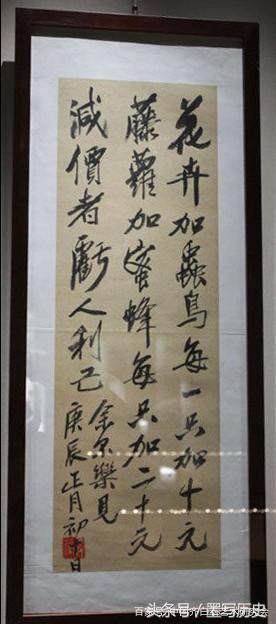 花卉加蟲鳥每一只加十元
藤蘿加蜜蜂每只加二十元
減價者虧人利己
余不樂見
庚辰正月初十日
头条号／墨写历史